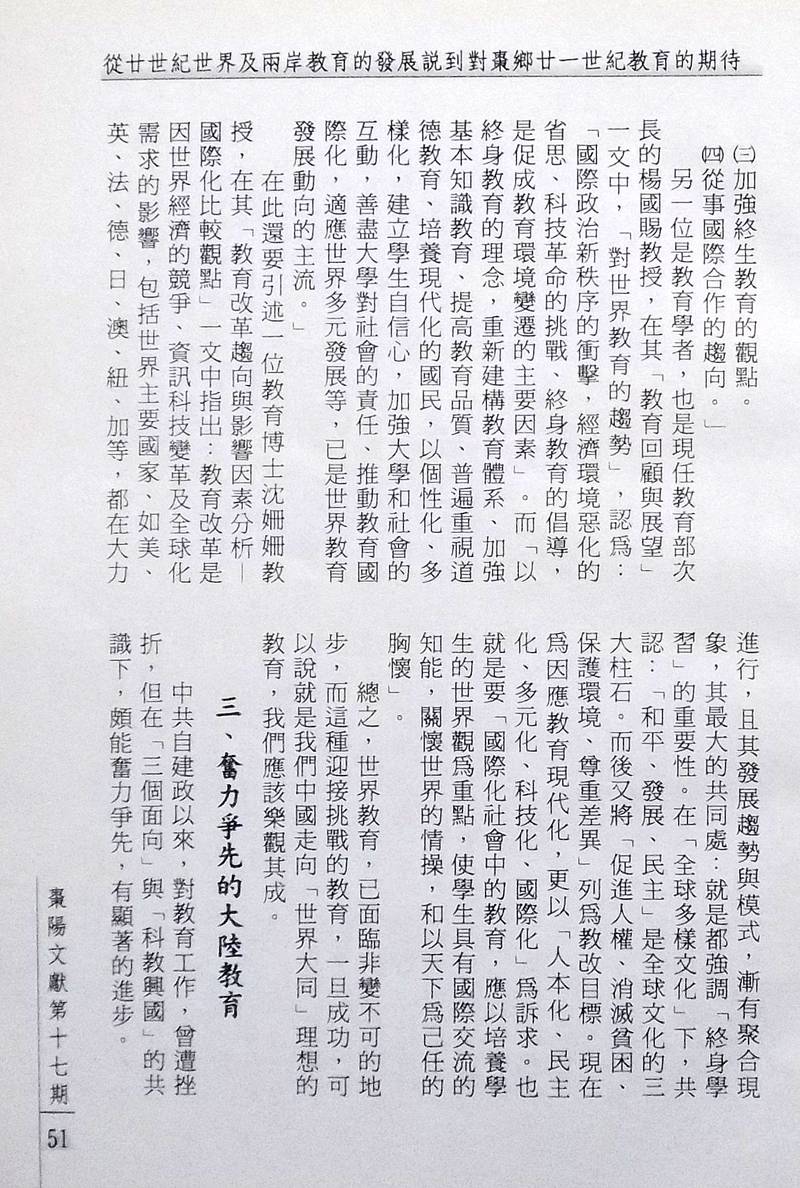 從廿世紀世界及兩岸教育的發展説到對棗鄉廿一世紀教育的期待
㈢加強終生教育的觀點。
㈣從事國際合作的趨向。」
另一位是教育學者，也是現任教育部次
長的楊國賜教授，在其「教育回顧與展望」
一文中，「對世界教育的趨勢」，認爲：
「國際政治新秩序的衝擊，經濟環境惡化的
省思、科技革命的挑戰、終身教育的倡導，
是促成教育環境變遷的主要因素」。而「以
終身教育的理念，重新建構教育體系、加強
基本知識教育、提高教育品質、普遍重視道
德教育、培養現代化的國民，以個性化、多
樣化，建立學生自信心，加強大學和社會的
互動，善盡大學對社會的責任、推動教育國
際化，適應世界多元發展等，已是世界教育
發展動向的主流。」
在此還要引述一位教育博士沈姍姍教
授，在其「教育改革趨向與影響因素分析—
國際化比較觀點」一文中指出：教育改革是
因世界經濟的競爭、資訊科技變革及全球化
需求的影響，包括世界主要國家、如美、
英、法、德、日、澳、紐、加等，都在大力
進行，且其發展趨勢與模式，漸有聚合現
象，其最大的共同處：就是都強調「終身學
習」的重要性。在「全球多樣文化」下，共
認：「和平、發展、民主」是全球文化的三
大柱石。而後又將「促進人權、消滅貧困、
保護環境、尊重差異」列爲教改目標。現在
爲因應教育現代化，更以「人本化、民主
化、多元化、科技化、國際化」爲訴求。也
就是要「國際化社會中的教育，應以培養學
生的世界觀爲重點，使學生具有國際交流的
知能，關懷世界的情操，和以天下爲己任的
胸懷」。
總之，世界教育，已面臨非變不可的地
步，而這種迎接挑戰的教育，一旦成功，可
以說就是我們中國走向「世界大同」理想的
教育，我們應該樂觀其成。
三、奮力爭先的大陸教育
中共自建政以來，對教育工作，曾遭挫
折，但在「三個面向」與「科教興國」的共
識下，頗能奮力爭先，有顯著的進步。
棗陽文獻第十七期
51